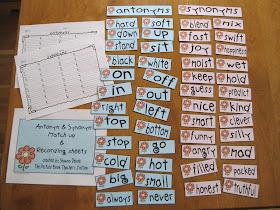 antonyms
hard
soft
down
up
stand
sit
black
white
on
off
in
out
right
left
top
bottom
stop
go
cold
hot
big
small
always
never
synonyms
blend
mix
fast
swift
joy
happiness
moist
wet
keep
hold
guess
predict
nice
kind
smart
clever
funny
silly
angry
mad
filled
packed
honest
truthful
Antonym & Synonym
Match up
&
Recording sheets
created by Shawna Devoe
The Picture Book Teacher's Edition